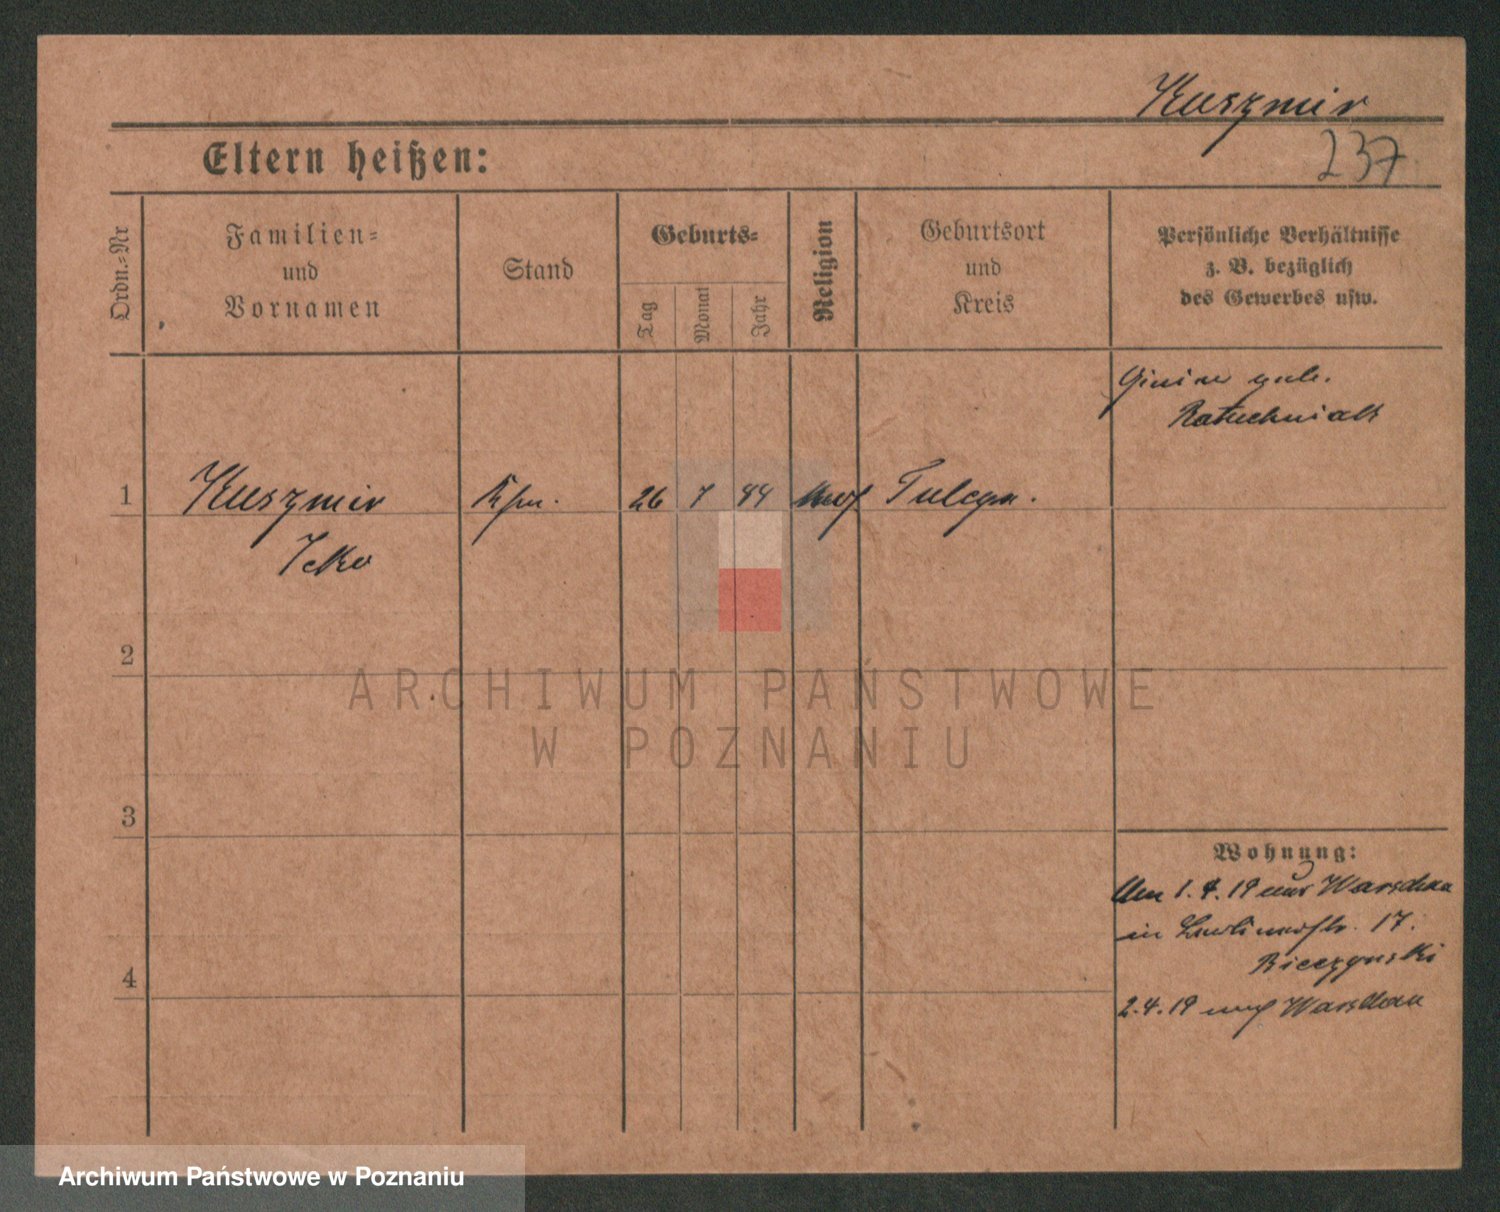 Kuszmir
237
Eltern heißen:
Ordn.=Nr
Familien=
und
Vornamen
Stand
Geburts=
Tag
Monat
Jahr
Religion
Geburtsort
und
Kreis
Persönliche Verhältnisse
z. B. bezüglich
des Gewerbes usw.
geb.
Ratuchniak
1
Kuszmir
Kfm.
26 7 44
Icko
2
3
4
Wohnung:
1. 4. 19 aus Warschau
in 17.
Bieczynski
2. 4. 19 nach Warschau
ARCHIWUM PAŃSTWOWE
W POZNANIU
Archiwum Państwowe w Poznaniu